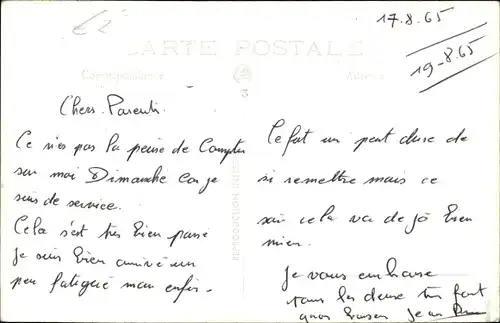 17.8.65
19-8.65
CARTE POSTALE
Correspondance
Adresse
3
Chers Parents
Ce n'es pas la peine de Compter
sur moi Dimanche Car je
suis de service.
Cela s'est très bien passé
je suis bien arrivé un
peu fatigué mais enfin.
REPRODUCTION
Ce fut un peut dure de
si remettre mais ce
soir cela va dejà bien
mieu.
Je vous embrasse
tous les deux très fort
gros baiser Jean